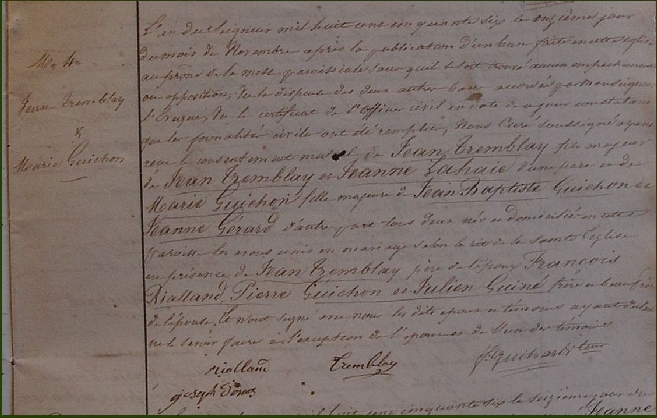 Mge de
Jean Tremblay
&
Marie Guichon
L'an du Seigneur mil huit cent cinquante six le onzième jour
du mois de Novembre après la publication d'un ban faite en cette église
au prône de la messe paroissiale sans qu'il se soit trouvé aucun empêchement
ou opposition, Vu la dispense des deux autres bans accordés par Monseigneur
l'Evêque, Vu le certificat de l'Officier civil en date de ce jour constatant
que les formalités civiles ont été remplies, Nous Curé soussigné ayant
reçu le consentement mutuel de Jean Tremblay fils majeur
de Jean Tremblay et Jeanne Lahaie d'une part et de
Marie Guichon fille majeure de Jean Baptiste Guichon et
Jeanne Gérard d'autre part tous deux nés et domiciliés en cette
paroisse les avons unis en mariage selon le rit de la Sainte Eglise
en présence de Jean Tremblay père de l'époux François
Rialland, Pierre Guichon et Julien Guiné frère et beau frère
de l'épouse. Et ont signé avec nous les dits époux et témoins ayant déclaré
ne le savoir faire à l'exception de l'époux et de l'un des témoins
rialland Tremblay
joseph
mil huit cent cinquante six le seizième jour du
Jeanne